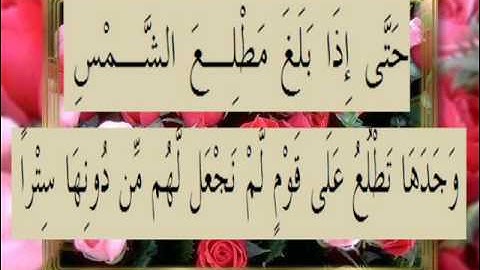 حَتَّى إِذَا بَلَغَ مَطْلِـــعَ الشَّـــمْسِ
وَجَدَهَا تَطْلُعُ عَلَى قَوْمٍ لَّمْ نَجْعَل لَّهُم مِّن دُونِهَا سِتْراً